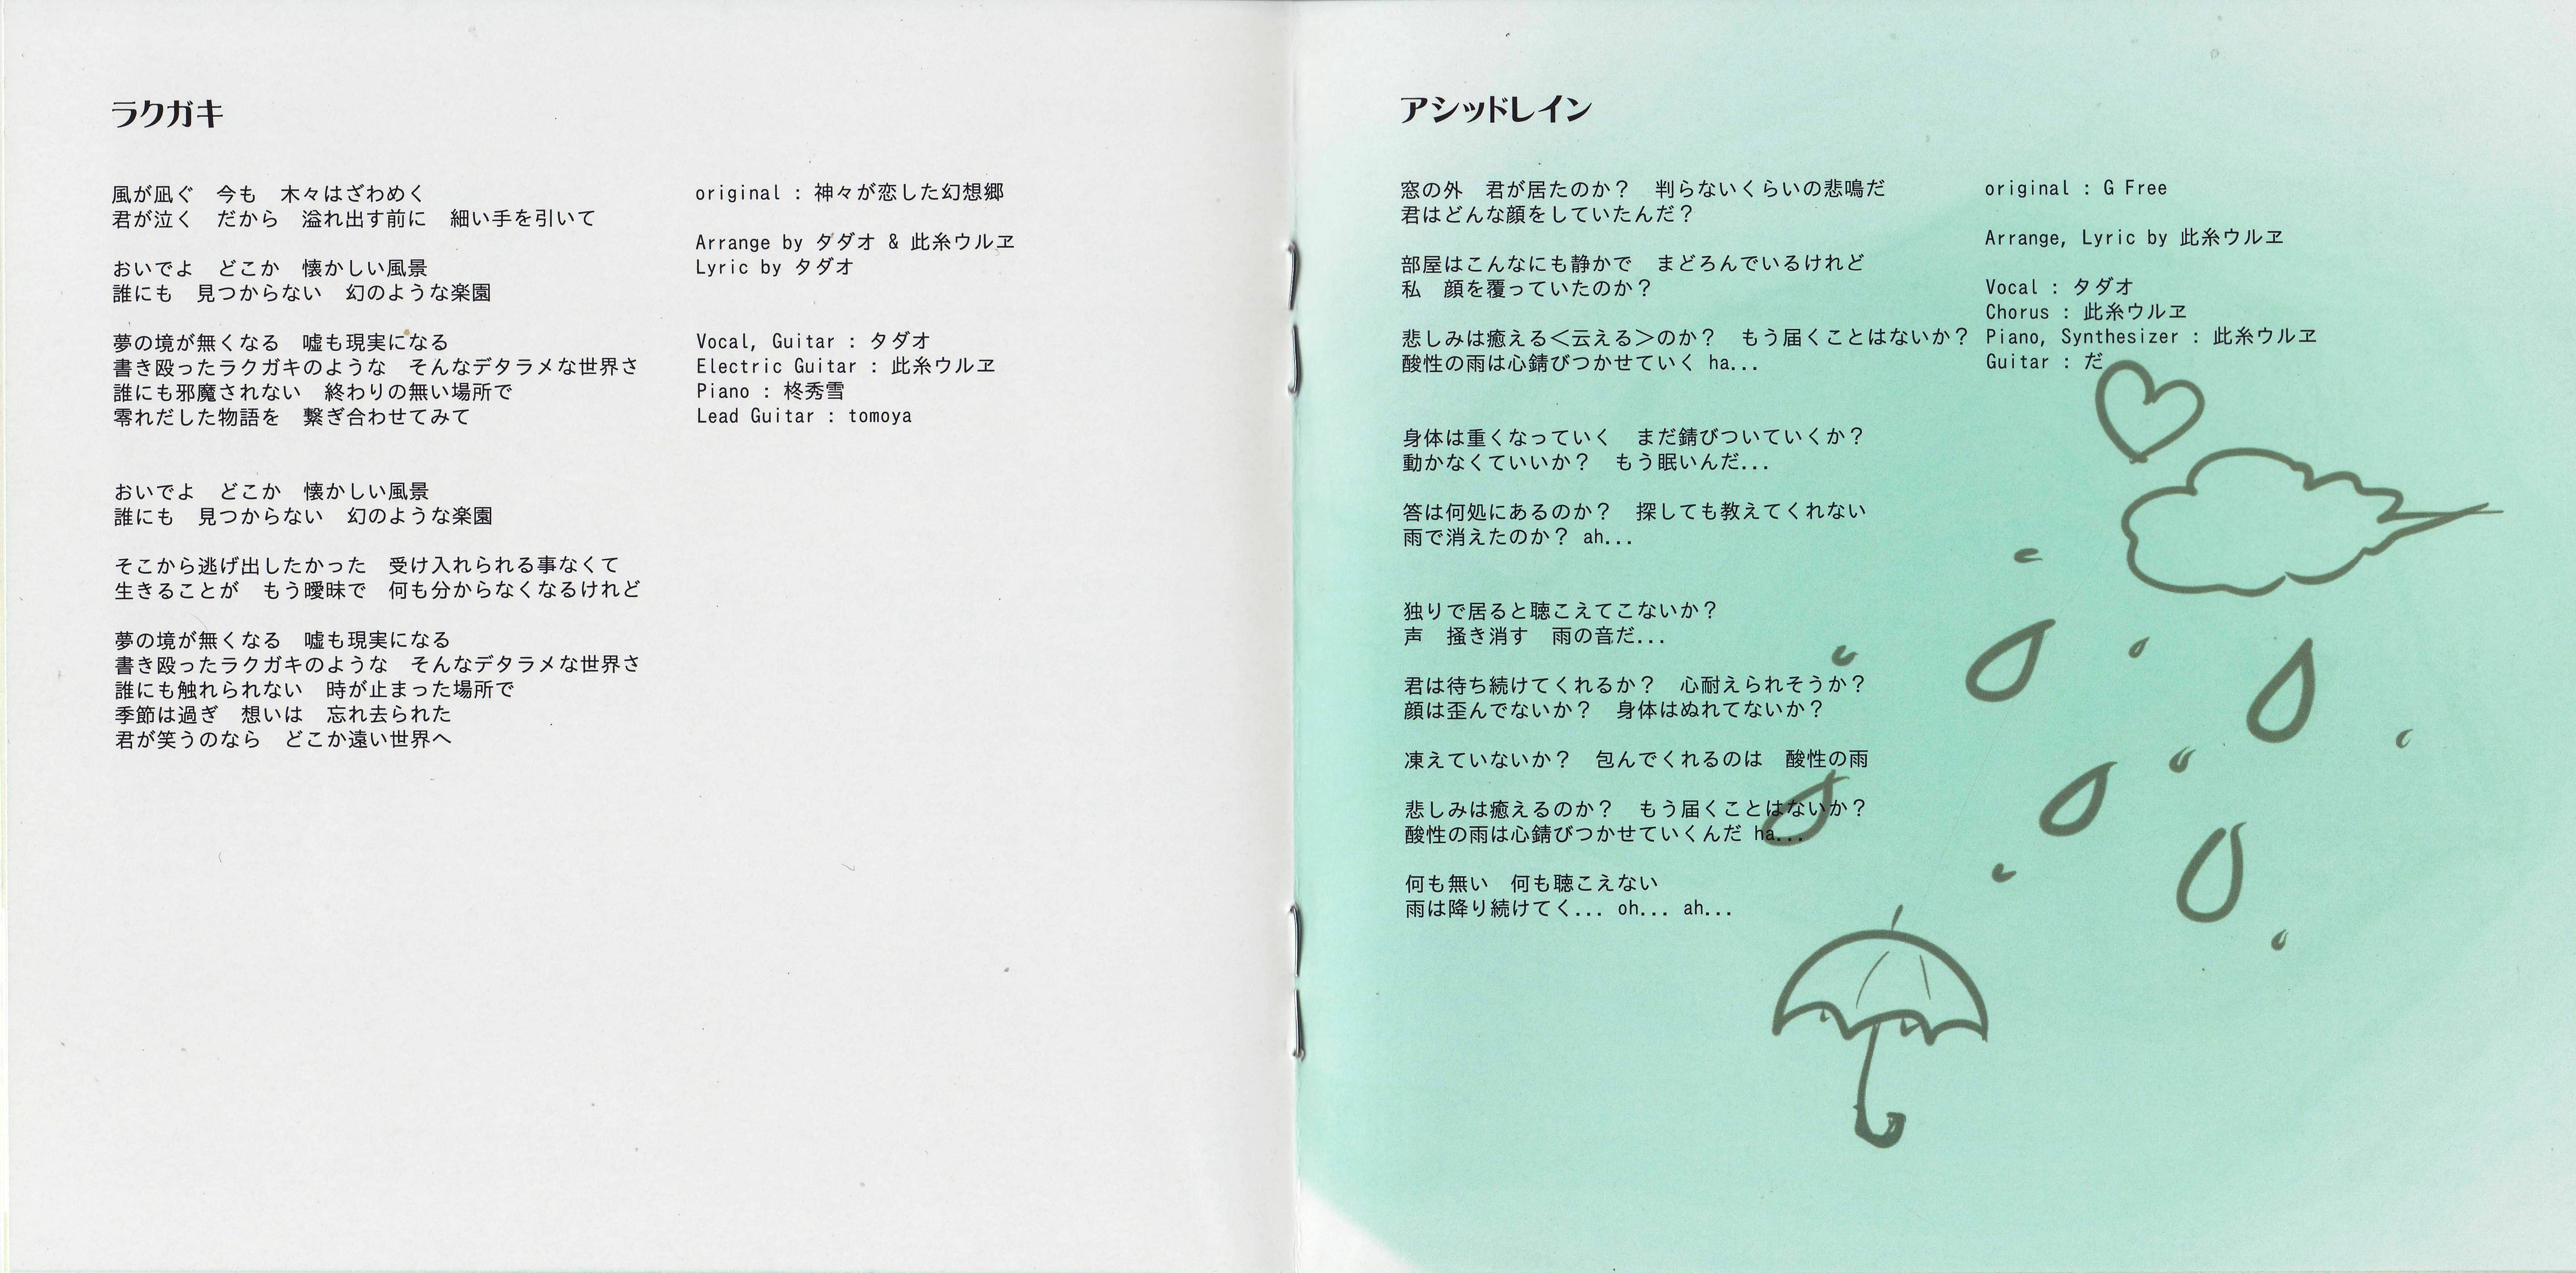 ラクガキ
風が凪ぐ　今も　木々はざわめく
君が泣く　だから　溢れ出す前に　細い手を引いて
おいでよ　どこか　懐かしい風景
誰にも　見つからない　幻のような楽園
夢の境が無くなる　嘘も現実になる
書き殴ったラクガキのような　そんなデタラメな世界さ
誰にも邪魔されない　終わりの無い場所で
零れだした物語を　繋ぎ合わせてみて
おいでよ　どこか　懐かしい風景
誰にも　見つからない　幻のような楽園
そこから逃げ出したかった　受け入れられる事なくて
生きることが　もう曖昧で　何も分からなくなるけれど
夢の境が無くなる　嘘も現実になる
書き殴ったラクガキのような　そんなデタラメな世界さ
誰にも触れられない　時が止まった場所で
季節は過ぎ　想いは　忘れ去られた
君が笑うのなら　どこか遠い世界へ
original : 神々が恋した幻想郷
Arrange by タダオ & 此糸ウルヱ
Lyric by タダオ
Vocal, Guitar : タダオ
Electric Guitar : 此糸ウルヱ
Piano : 柊秀雪
Lead Guitar : tomoya
アシッドレイン
窓の外　君が居たのか？　判らないくらいの悲鳴だ
君はどんな顔をしていたんだ？
部屋はこんなにも静かで　まどろんでいるけれど
私　顔を覆っていたのか？
悲しみは癒える＜云える＞のか？　もう届くことはないか？
酸性の雨は心錆びつかせていく ha...
身体は重くなっていく　まだ錆びついていくか？
動かなくていいか？　もう眠いんだ...
答は何処にあるのか？　探しても教えてくれない
雨で消えたのか？ ah...
独りで居ると聴こえてこないか？
声　掻き消す　雨の音だ...
君は待ち続けてくれるか？　心耐えられそうか？
顔は歪んでないか？　身体はぬれてないか？
凍えていないか？　包んでくれるのは　酸性の雨
悲しみは癒えるのか？　もう届くことはないか？
酸性の雨は心錆びつかせていくんだ ha...
何も無い　何も聴こえない
雨は降り続けてく... oh... ah...
original : G Free
Arrange, Lyric by 此糸ウルヱ
Vocal : タダオ
Chorus : 此糸ウルヱ
Piano, Synthesizer : 此糸ウルヱ
Guitar : だ